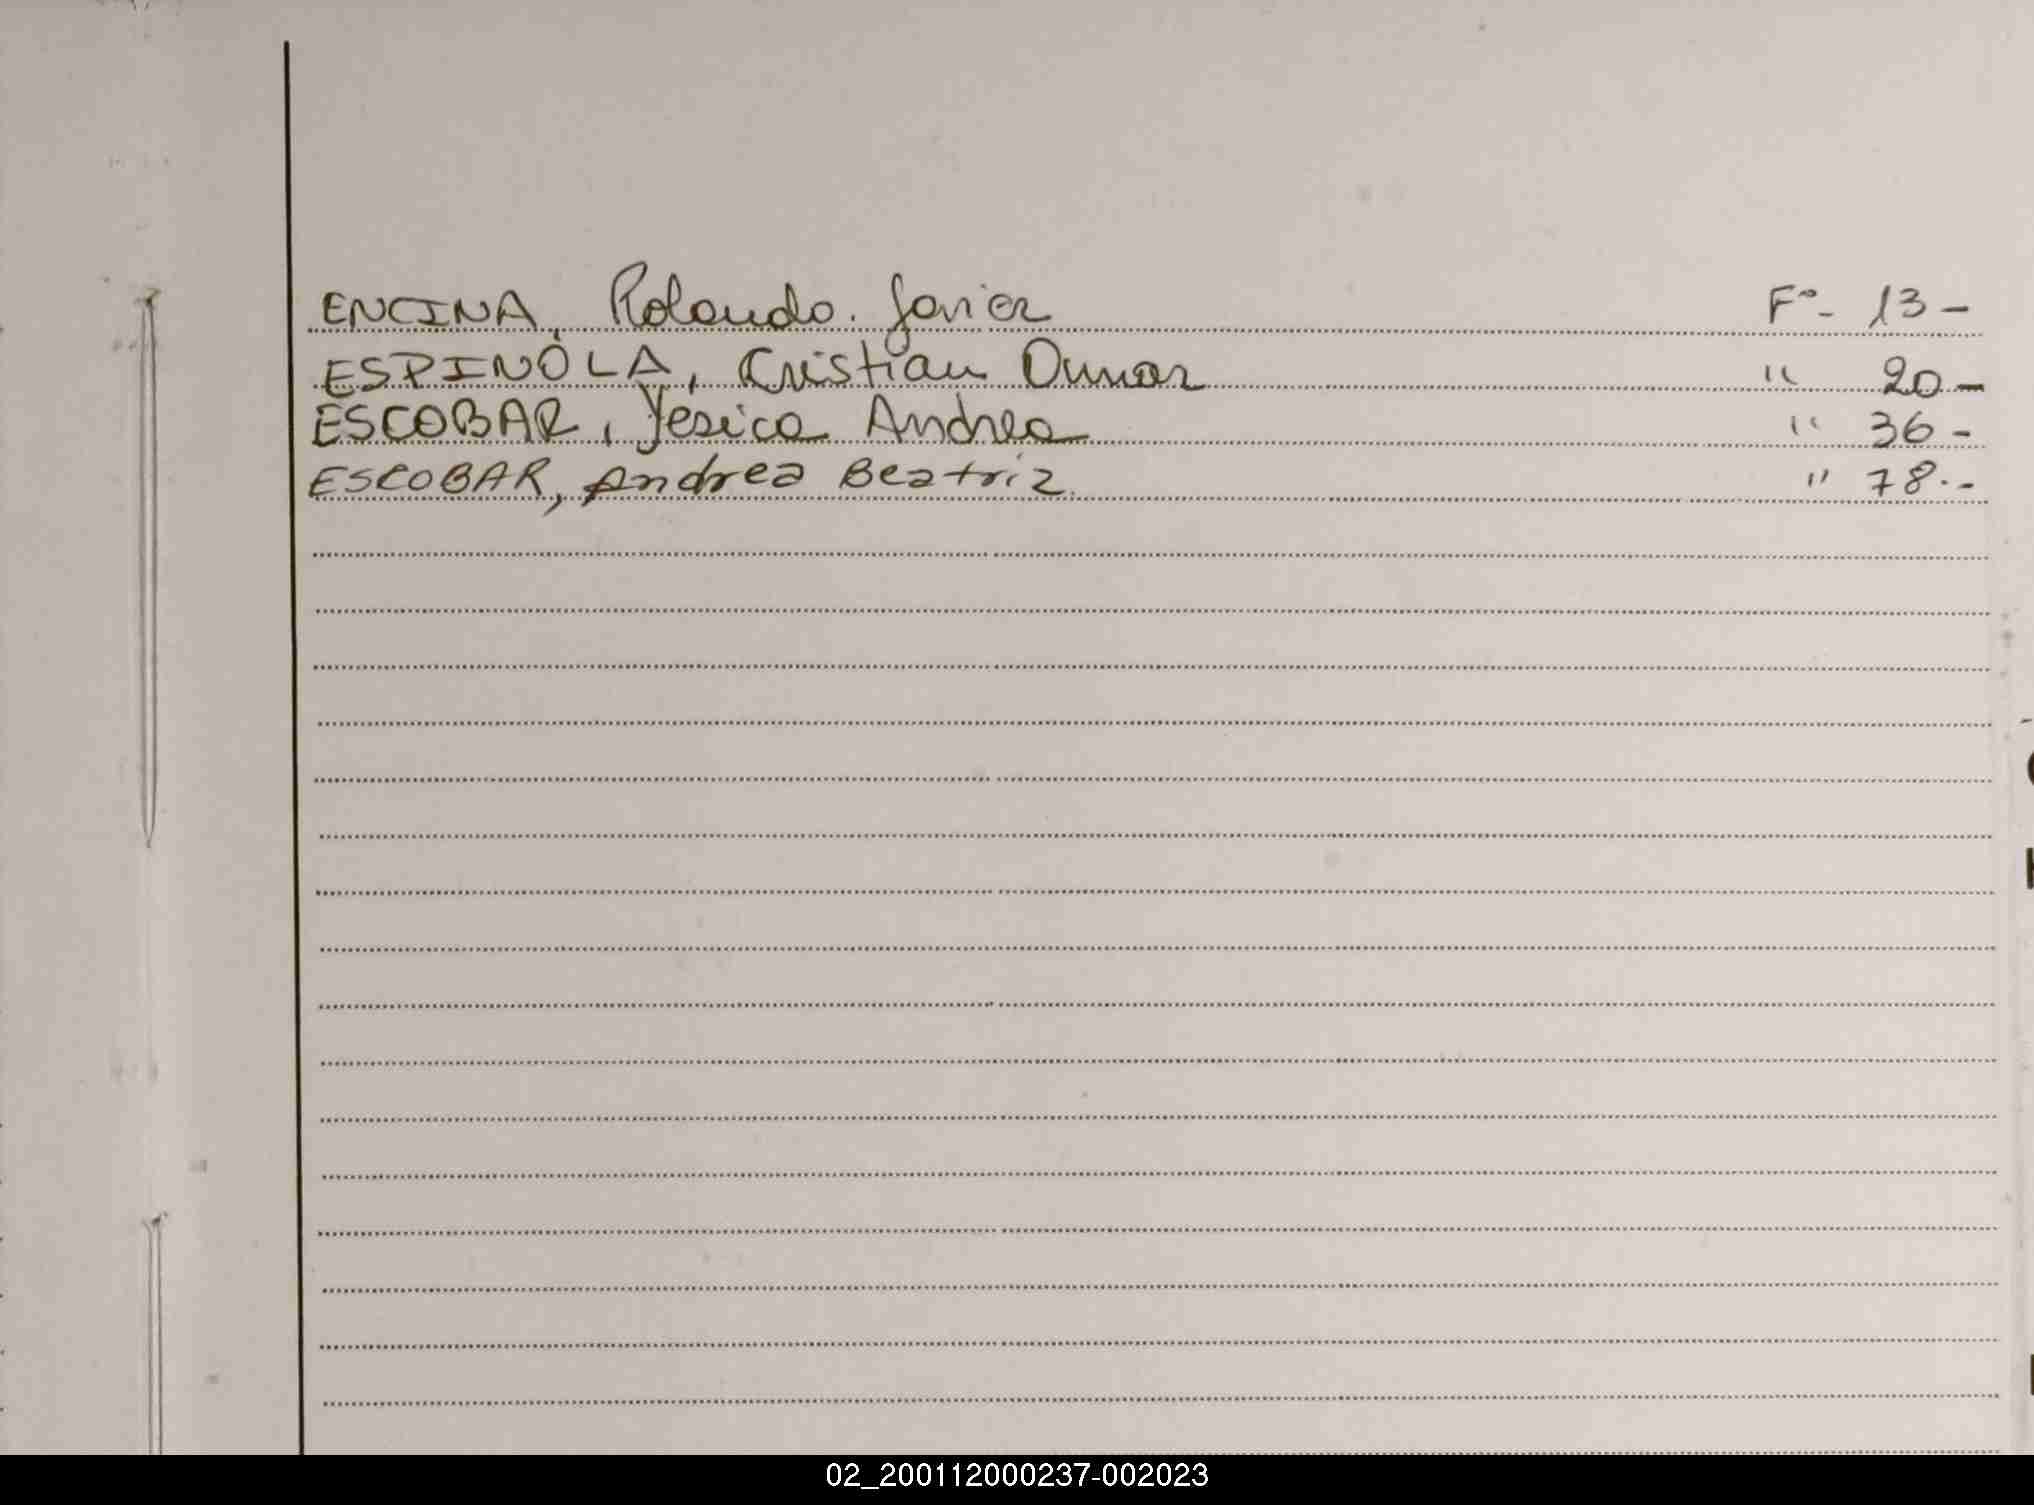 ENCINA, Rolando. Javier F° - 13 -
ESPINOLA, Cristian Omar " 20 -
ESCOBAR, Yesica Andrea " 36 -
ESCOBAR, Andrea Beatriz. " 78.-
02_200112000237-002023